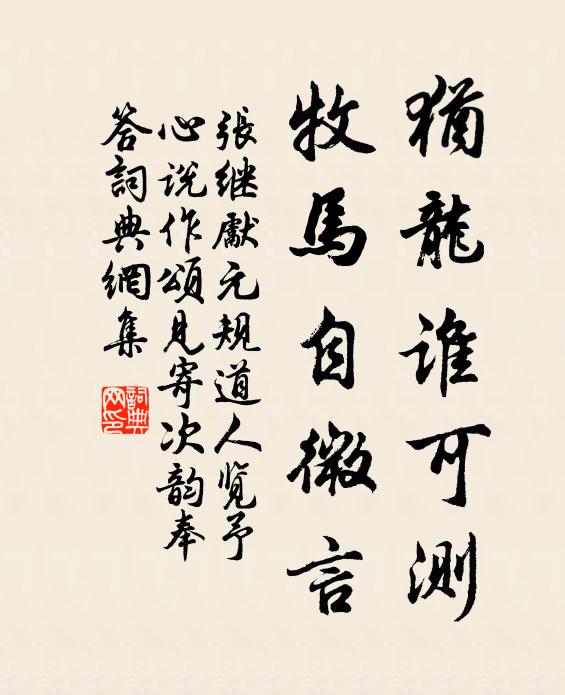 猶龍谁可測
牧馬自微言
張继獻元規道人览予
心说作頌見寄次韵奉
答詞典網集
詞典网印